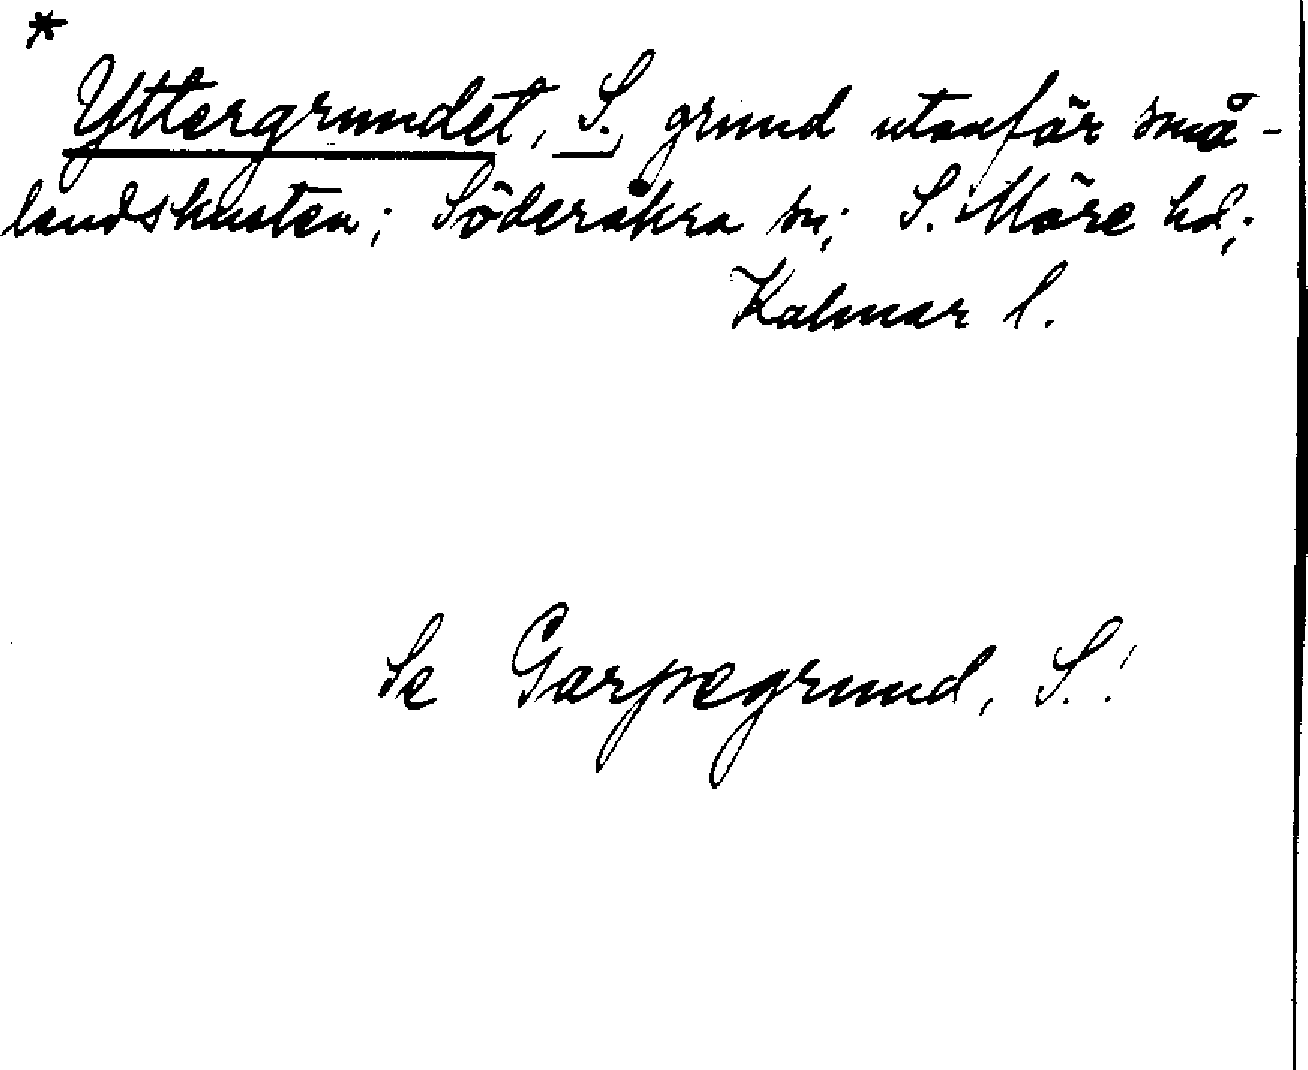 *
Yttergrundet, S., grund utanför små-
landskusten; Söderåkra sn; S. Möre hd;
Kalmar l.
Se Garpegrund, S.!